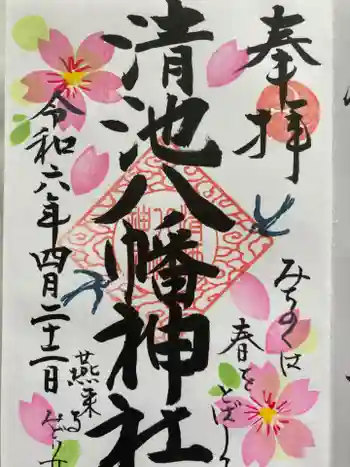 奉拝
清池八幡神社
令和六年四月二十二日
みちのくは
春をとばし
燕来る